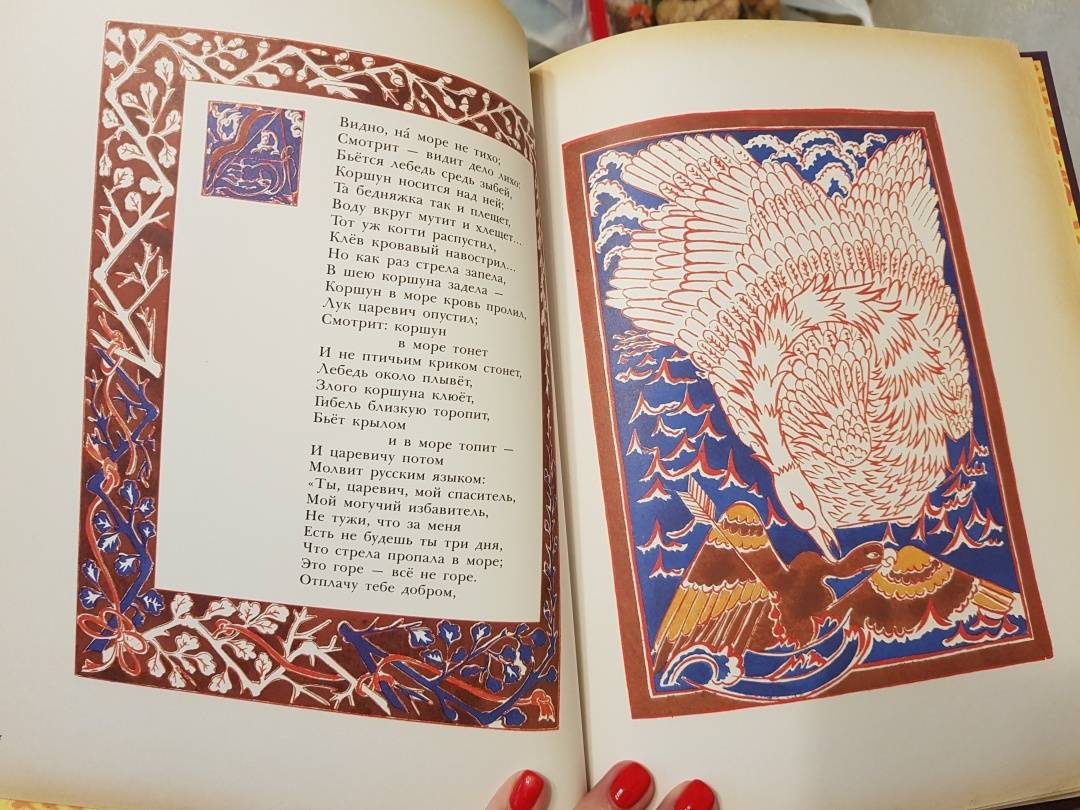 Видно, на́ море не тихо;
Смотрит — видит дело лихо:
Бьётся лебедь средь зыбей,
Коршун носится над ней;
Та бедняжка так и плещет,
Воду вкруг мутит и хлещет...
Тот уж когти распустил,
Клёв кровавый навострил...
Но как раз стрела запела,
В шею коршуна задела —
Коршун в море кровь пролил,
Лук царевич опустил;
Смотрит: коршун
в море тонет
И не птичьим криком стонет,
Лебедь около плывёт,
Злого коршуна клюёт,
Гибель близкую торопит,
Бьёт крылом
и в море топит —
И царевичу потом
Молвит русским языком:
«Ты, царевич, мой спаситель,
Мой могучий избавитель,
Не тужи, что за меня
Есть не будешь ты три дня,
Что стрела пропала в море;
Это горе — всё не горе.
Отплачу тебе добром,